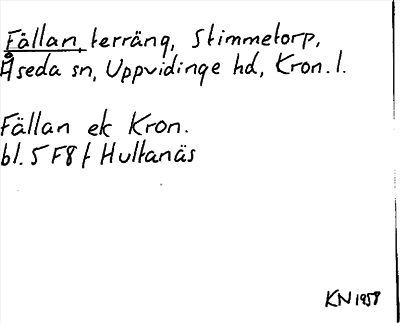 Fällan, terräng, Stimmetorp,
Åseda sn, Uppvidinge hd, Kron. l.
Fällan ek Kron.
bl. 5 F8 f Hultanäs
KN 1958